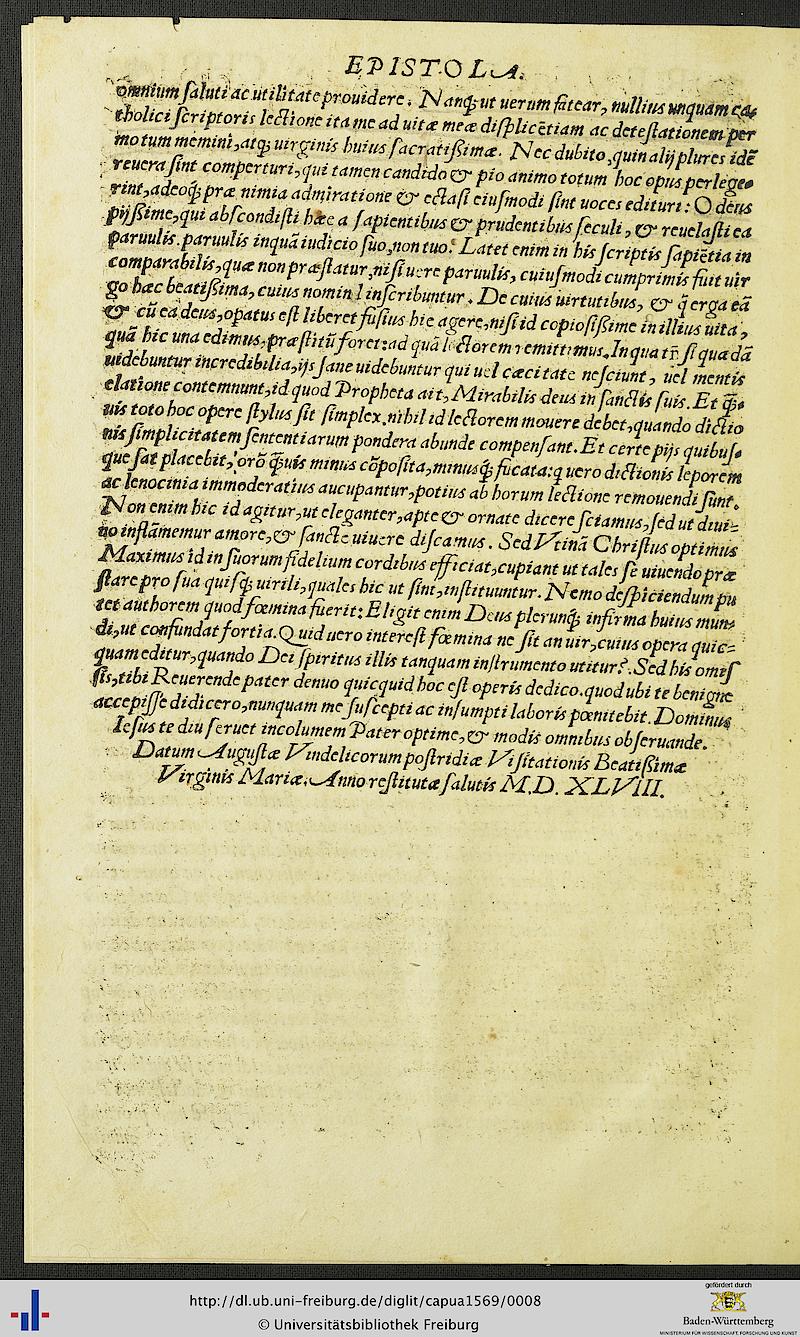 EPISTOLA.
omnium ſaluti ac utilitate prouidere. Nanq́; ut uerum fatear, nullius unquam ca⸗
tholici ſcriptoris lectione ita me ad uitæ meæ diſplicētiam ac deteſtationem per
motum memini, atq; uirginis huius ſacratiſsimæ. Nec dubito, quin alij plures idē
reuera ſint comperturi, qui tamen candido & pio animo totum hoc opus perlege⸗
rint, adeoq́; præ nimia admiratione & ectaſi eiuſmodi ſint uoces edituri: O deus
pijſsime, qui abſcondiſti hæc a ſapientibus & prudentibus ſeculi, & reuelaſti ea
paruulis. paruulis inquā iudicio ſuo, non tuo. Latet enim in his ſcriptis ſapiētia in
comparabilis, quæ non præſtatur, niſi uere paruulis, cuiuſmodi cumprimis fuit uir
go hæc beatiſsima, cuius nomini inſcribuntur. De cuius uirtutibus, & q̄ erga eā
& cū ea deus, opatus eſt liberet fuſius hic agere, niſi id copioſiſsime in illius uita,
quā hic una edimus, præſtitū foret: ad quā lectorem remittimus. In qua tñ ſi quædā
uidebuntur incredibilia, ijs ſane uidebuntur qui uel cæcitate neſciunt, uel mentis
elatione contemnunt, id quod Propheta ait, Mirabilis deus in ſanctis ſuis. Et q̄⸗
uis toto hoc opere ſtylus ſit ſimplex. nihil id lectorem mouere debet, quando dictio
nis ſimplicitatem ſententiarum pondera abunde compenſant. Et certe pijs quibuſ⸗
que ſat placebit, orō q̄uis minus cōpoſita, minusq́; fucata: q uero dictionis leporem
ac lenocinia immoderatius aucupantur, potius ab horum lectione remouendi ſunt.
Non enim hic id agitur, ut eleganter, apte & ornate dicere ſciamus, ſed ut diui⸗
no inflāmemur amore, & ſancte uiuere diſcamus. Sed Vtinā Chriſtus optimus
Maximus id in ſuorum fidelium cordibus efficiat, cupiant ut tales ſe uiuendo præ
ſtare pro ſua quiſq; uirili, quales hic ut ſint, inſtituuntur. Nemo deſpiciendum pu
tet authorem quod fœmina fuerit: Eligit enim Deus plerunq́; infirma huius mun⸗
di, ut confundat fortia. Quid uero intereſt fœmina ne ſit an uir, cuius opera quic⸗
quam editur, quando Dei ſpiritus illis tanquam inſtrumento utitur? Sed his omiſ
ſis, tibi Reuerende pater denuo quicquid hoc eſt operis dedico. quod ubi te benigne
accepiſſe didicero, nunquam me ſuſcepti ac inſumpti laboris pœnitebit. Dominus
Ieſus te diu ſeruet incolumem Pater optime, & modis omnibus obſeruande.
Datum Auguſtæ Vindelicorum poſtridiæ Viſitationis Beatiſsimæ
Virginis Mariæ. Anno reſtitutæ ſalutis M.D. XLVIII.
http://dl.ub.uni-freiburg.de/diglit/capua1569/0008
© Universitätsbibliothek Freiburg
gefördert durch
Baden-Württemberg
MINISTERIUM FÜR WISSENSCHAFT, FORSCHUNG UND KUNST